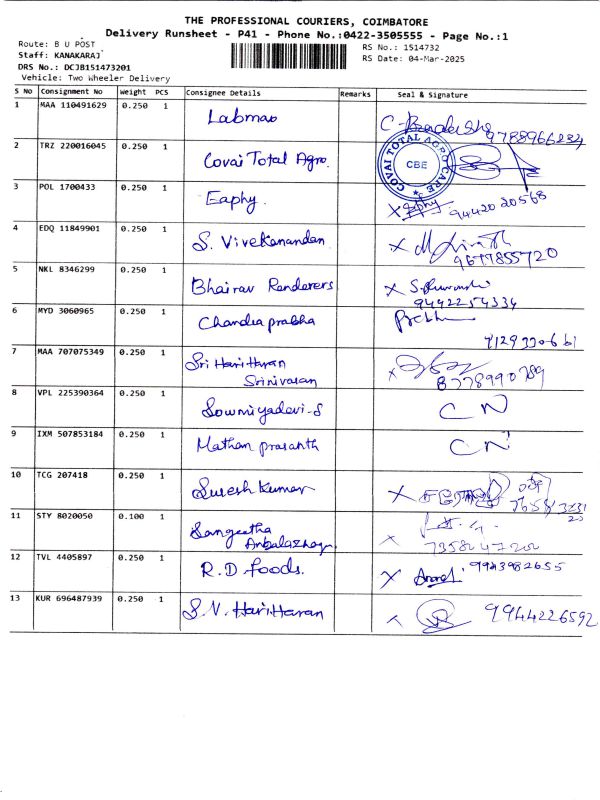 THE PROFESSIONAL COURIERS, COIMBATORE
Delivery Runsheet - P41 - Phone No.:0422-3505555 - Page No.:1
Route: B U POST
Staff: KANAKARAJ
DRS No.: DCJB151473201
Vehicle: Two Wheeler Delivery
RS No.: 1514732
RS Date: 04-Mar-2025
S No Consignment No Weight PCS Consignee Details Remarks Seal & Signature
1 MAA 110491629 0.250 1 Labmao
9788966234
2 TRZ 220016045 0.250 1 Covai Total Agro.
COVAI TOTAL AGRO CARE
CBE
3 POL 1700433 0.250 1 Eaphy.
X 9442020568
4 EDQ 11849901 0.250 1 S. Vivekanandan
X 9677855720
5 NKL 8346299 0.250 1 Bhairav Renderers
X
9442254334
6 MYD 3060965 0.250 1 Chandra prabha
7 MAA 707075349 0.250 1 Sri Hari Haran
Srinivasan
X 8778990789
8 VPL 225390364 0.250 1 Sowmiyadevi-S CN
9 IXM 507853184 0.250 1 Mathan prasanth CN
10 TCG 207418 0.250 1 Suresh Kumar X
11 STY 8020050 0.100 1 Sangeetha
Anbalazhag
X
12 TVL 4405897 0.250 1 R.D foods. X 9943982655
13 KUR 696487939 0.250 1 S.V. Hari Haran X 9944226592